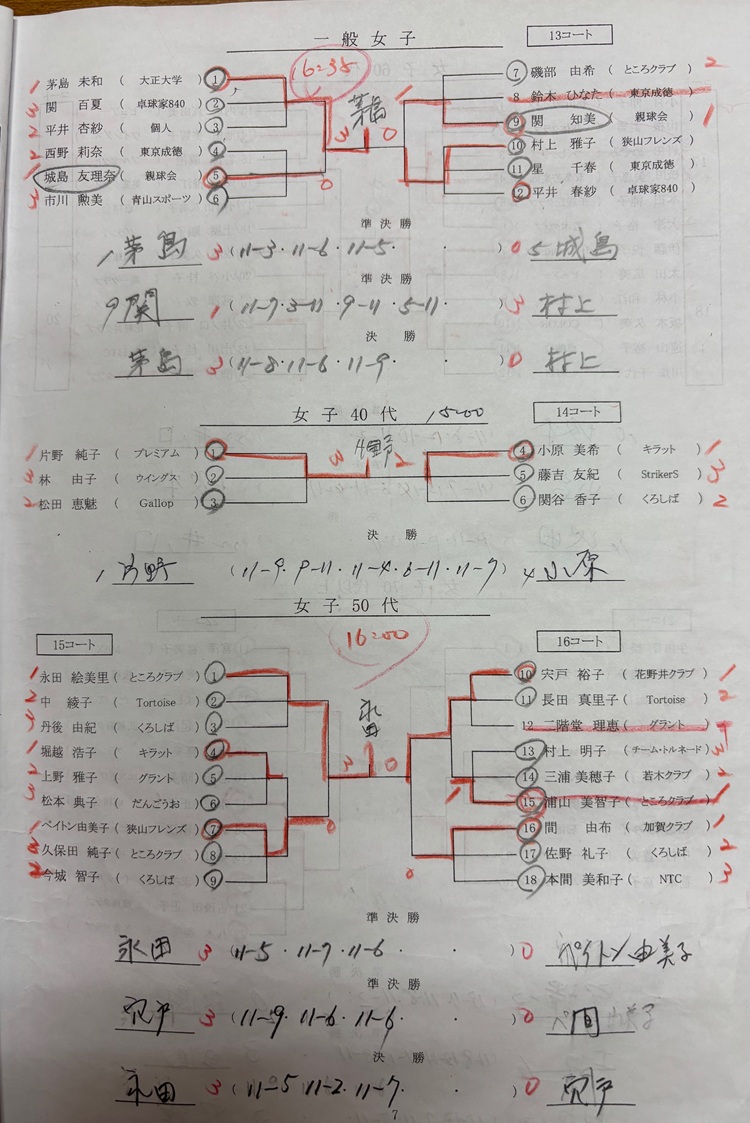 一般女子 13コート
16:35
1 茅島 未和 ( 大正大学 ) ①
3 関 百夏 ( 卓球家840 ) ②
2 平井 杏紗 ( 個人 ) ③
2 西野 莉奈 ( 東京成徳 ) ④
1 城島 友理奈 ( 親球会 ) ⑤
3 市川 勲美 ( 青山スポーツ ) ⑥
茅島
3 0
0
1
⑦ 磯部 由希 ( ところクラブ ) 2
8 鈴木 ひなた ( 東京成徳 )
⑨ 関 知美 ( 親球会 ) 1
⑩ 村上 雅子 ( 狭山フレンズ )
⑪ 星 千春 ( 東京成徳 )
⑫ 平井 春紗 ( 卓球家840 )
準決勝
1 茅島 3 ( 11-3・11-6・11-5・ ・ ) 0 5 城島
準決勝
9 関 1 ( 11-7・3-11・9-11・5-11・ ) 3 村上
決勝
茅島 3 ( 11-8・11-6・11-9 ・ ) 0 村上
女子40代 15:00 14コート
1 片野 純子 ( プレミアム ) ①
3 林 由子 ( ウイングス ) ②
2 松田 恵魅 ( Gallop ) ③
3 2
④ 小原 美希 ( キラット ) 1
⑤ 藤吉 友紀 ( StrikerS ) 3
⑥ 関谷 香子 ( くろしば ) 2
決勝
1 片野 ( 11-9・9-11・11-4・6-11・11-7 ) 4 小原
女子50代
15コート 16:00 16コート
1 永田 絵美里 ( ところクラブ ) ①
2 中 綾子 ( Tortoise ) ②
3 丹後 由紀 ( くろしば ) ③
1 堀越 浩子 ( キラット ) ④
2 上野 雅子 ( グラント ) ⑤
3 松本 典子 ( だんごうお ) ⑥
1 ペイトン由美子 ( 狭山フレンズ ) ⑦
久保田 純子 ( ところクラブ ) ⑧
2 今城 智子 ( くろしば ) ⑨
永田
3 0
0
1
0
⑩ 宍戸 裕子 ( 花野井クラブ ) 1
⑪ 長田 真里子 ( Tortoise ) 2
12 二階堂 理恵 ( グラント )
⑬ 村上 明子 ( チーム・トルネード ) 3
⑭ 三浦 美穂子 ( 若木クラブ ) 2
⑮ 浦山 美智子 ( ところクラブ ) 1
⑯ 間 由布 ( 加賀クラブ ) 1
⑰ 佐野 礼子 ( くろしば ) 2
⑱ 本間 美和子 ( NTC ) 3
準決勝
永田 3 ( 11-5・11-7・11-6・ ・ ) 0 ペイトン由美子
準決勝
宍戸 3 ( 11-9・11-6・11-6・ ・ ) 0 間
決勝
永田 3 ( 11-5 11-2・11-7・ ・ ) 0 宍戸
7